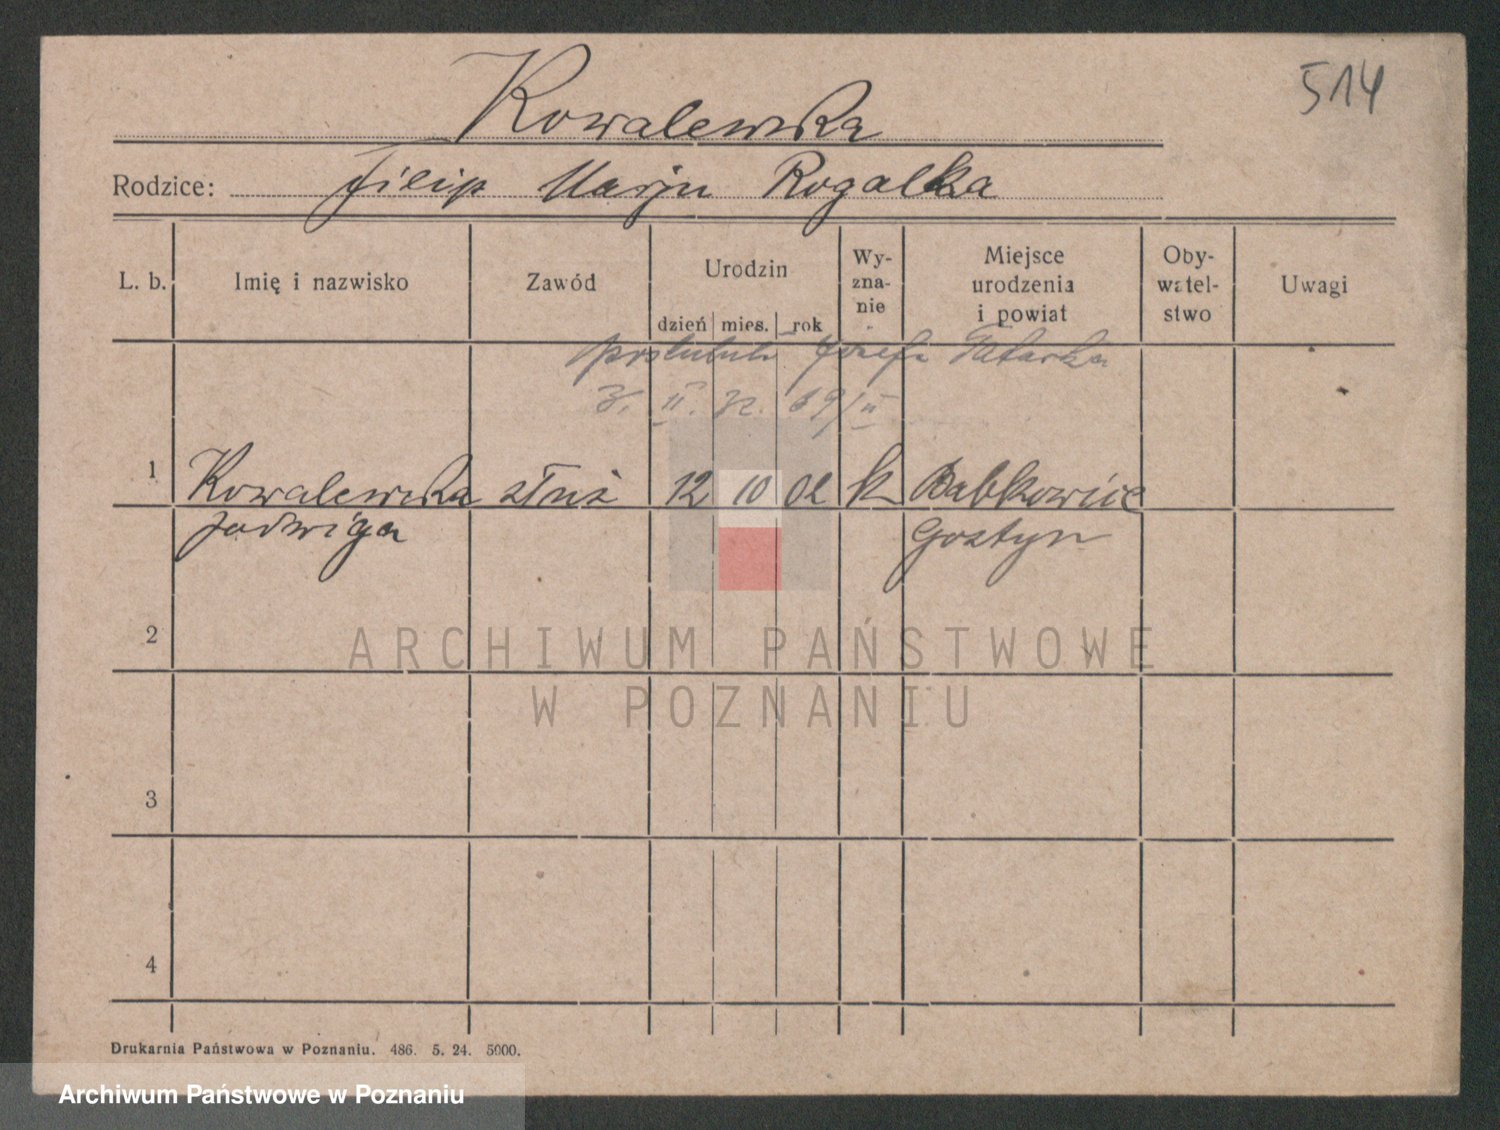 514
Kowalewska
Rodzice: Filip Marja Rogalka
L. b. Imię i nazwisko Zawód Urodzin dzień mies. rok Wy-znanie Miejsce urodzenia i powiat Oby-watel-stwo Uwagi
Józefa
3. II. 32. 69/II
1 Kowalewska służ 12 10 02 k Babkowice
Jadwiga Gostyn
2
ARCHIWUM PAŃSTWOWE
W POZNANIU
3
4
Drukarnia Państwowa w Poznaniu. 486. 5. 24. 5000.
Archiwum Państwowe w Poznaniu